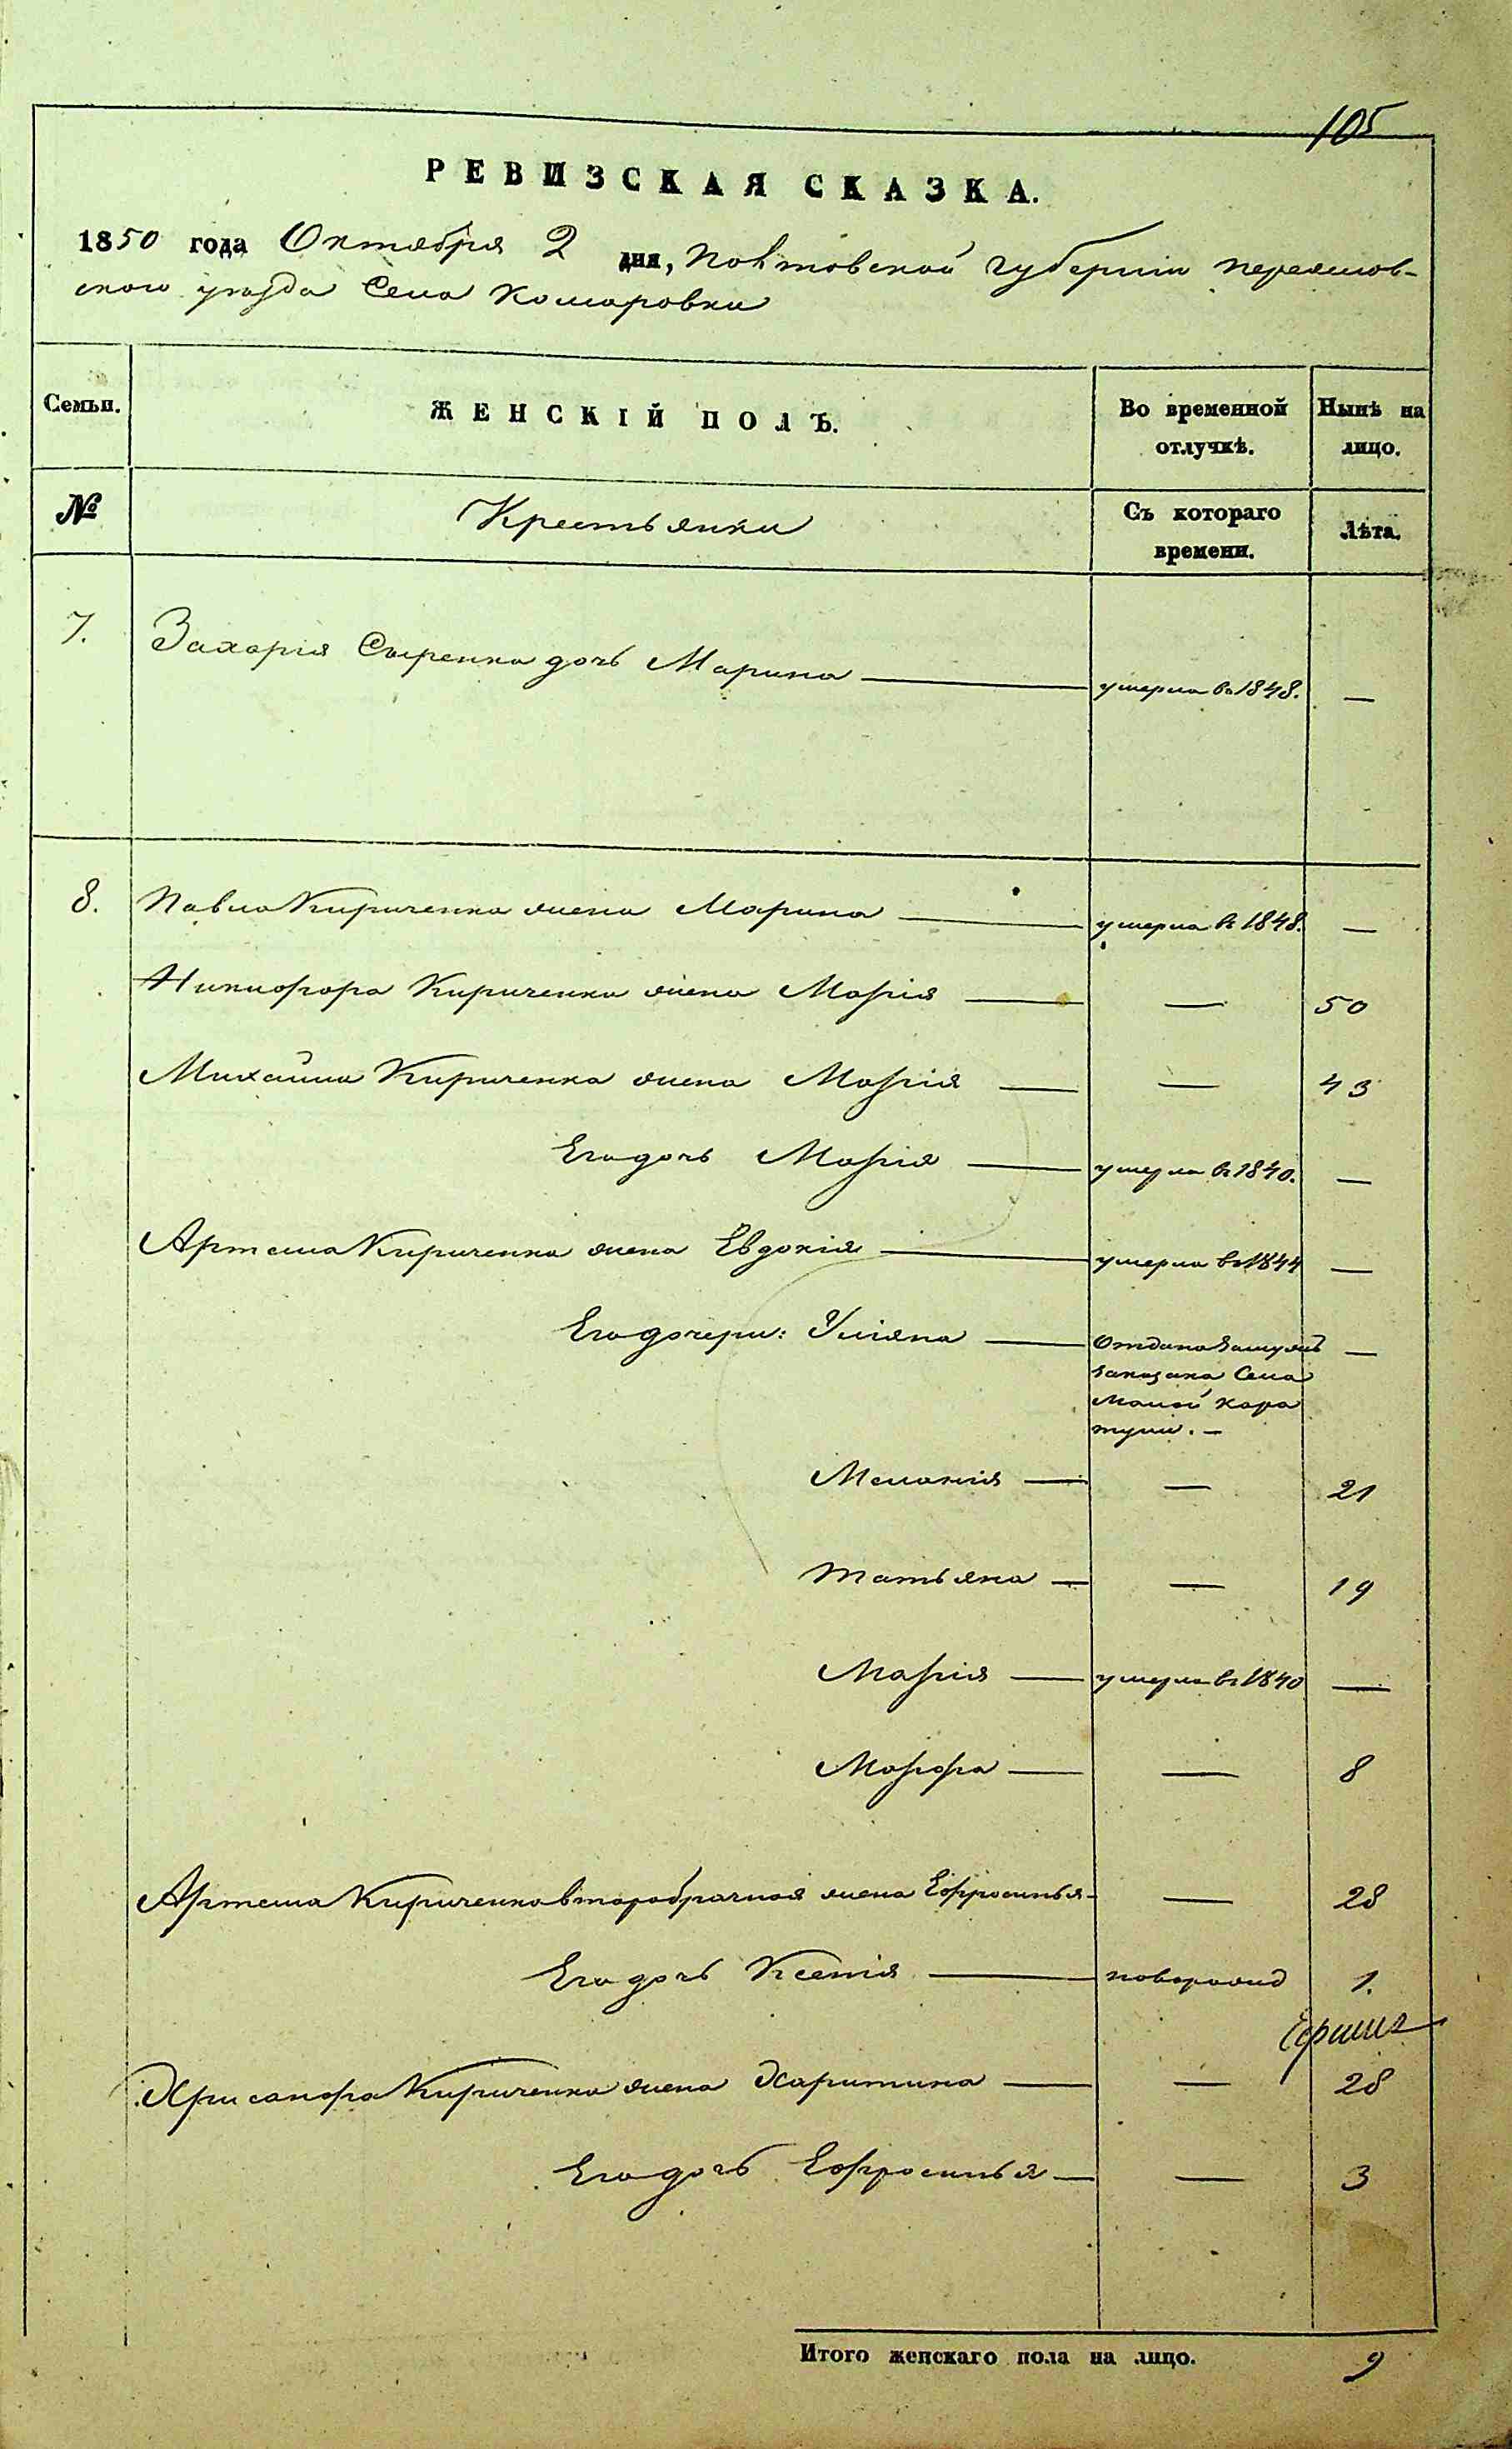 105
РЕВИЗСКАЯ СКАЗКА.
1850 года Октября 2 дня, Полтовской губернiи переяслов-
ского уѣзда Села Комаровки
Семьи. ЖЕНСКІЙ ПОЛЪ. Во временной отлучкѣ. Нынѣ на лицо.
№ Крестьянки Съ котораго времени. Лѣта.
7. Захарія Сыренка дочь Марина — умерла въ 1848. —
8. Павла Кириченка жена Марина — умерла въ 1848. —
Никифора Кириченка жена Марія — — 50
Михайла Кириченка жена Марія — — 43
Его дочь Марія — умерла въ 1840. —
Артема Кириченка жена Евдокія — умерла въ 1844 —
Его дочери: Уліяна — Отдана Замужъ —
за козака Села
Малой Кара
тули. —
Меланія — — 21
Татьяна — — 19
Марія — умерла въ 1840 —
Марфа — — 8
Артема Кириченка второбрачная жена Ефросинья — — 28
Его дочь Ксенія — новорожд 1.
Хрисанфа Кириченка жена Харитина — — 28
Его дочь Ефросинья — — 3
Итого женскаго пола на лицо. 9